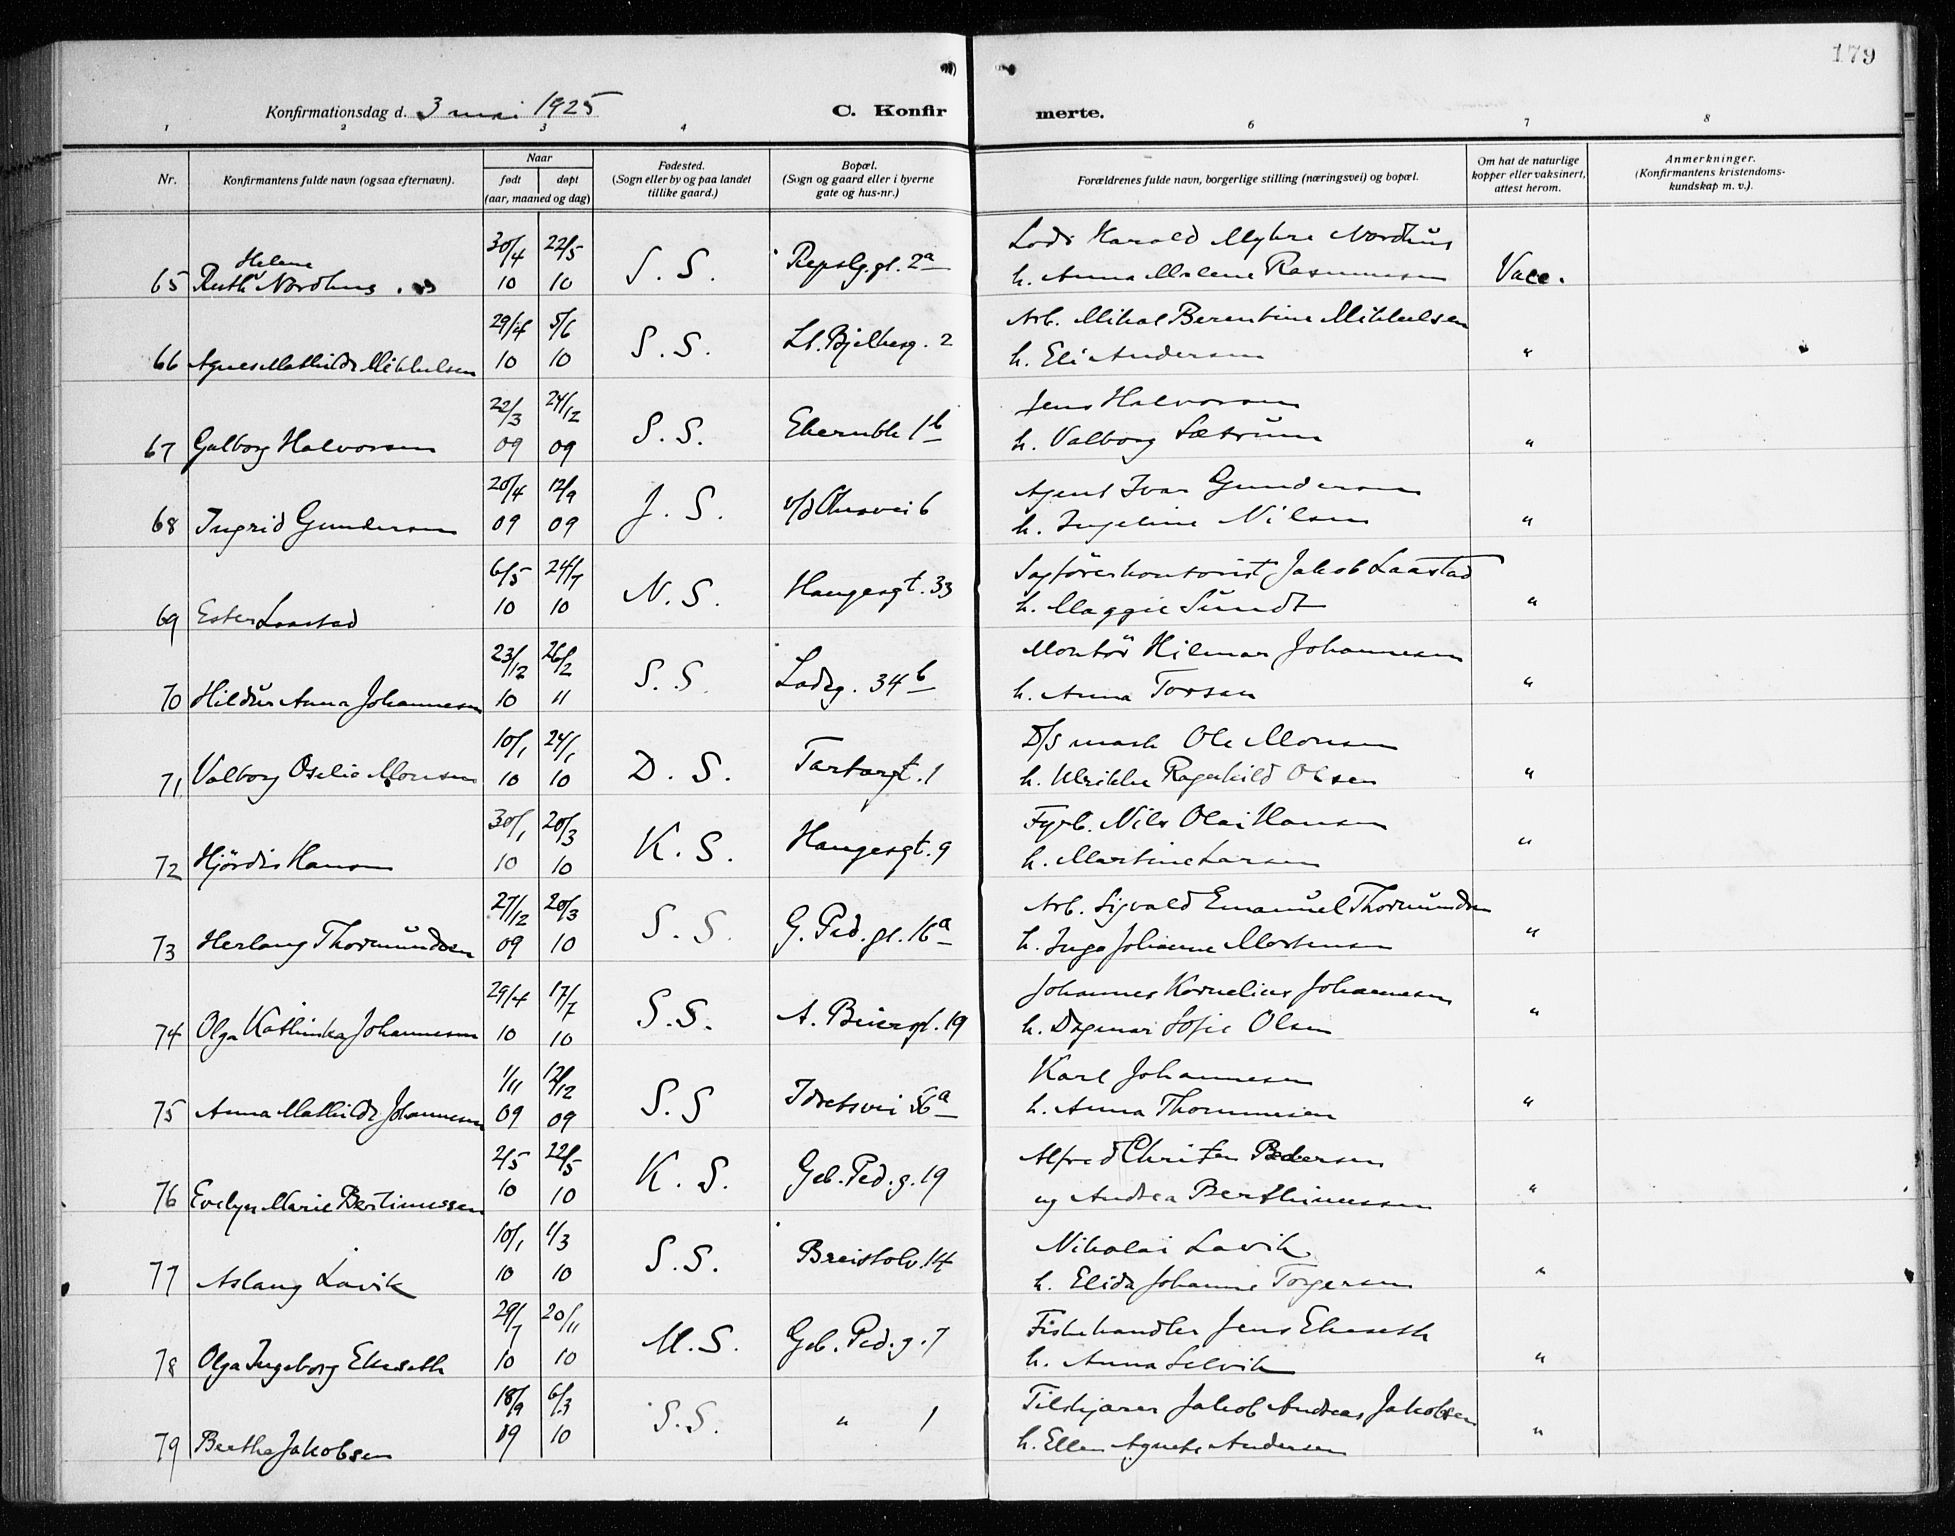 179
Konfirmationsdag d. 3 mai 1925
C. Konfir merte.
1 2 3 4 6 7 8
Nr.
Konfirmantens fulde navn (ogsaa efternavn).
Naar
født døpt
(aar, maaned og dag)
Fødested.
(Sogn eller by og paa landet
tillike gaard.)
Bopæl.
(Sogn og gaard eller i byerne
gate og hus-nr.)
Forældrenes fulde navn, borgerlige stilling (næringsvei) og bopæl.
Om hat de naturlige
kopper eller vaksinert,
attest herom.
Anmerkninger.
(Konfirmantens kristendoms-
kundskap m. v.).
Helene
30/4 22/5 Lods Harald Myhre Nordhus
65 Ruth Nordhus 10 10 S. S. Repslg.gt. 2a h. Anna Malene Rasmussen Vacc.
29/4 5/6 Arb. Mikal Berentine Mikkelsen
66 Agnes Mathilde Mikkelsen 10 10 S. S. Lt. Bjelkesg. 2 h. Eli Andersen "
22/3 24/12 Jens Halvorsen
67 Galborg Halvorsen 09 09 S. S. 1b h. Valborg Sætrum "
20/4 12/9 Agent Ivar Gundersen
68 Ingrid Gundersen 09 09 J. S. 6 h. Ingeline Nilsen "
6/5 24/7 Sagførerkontorist Jakob Laastad
69 Ester Laastad 10 10 N. S. Haugesgt. 33 h. Maggie Sundt "
23/12 26/2 Montör Hilmar Johannesen
70 Hildur Anna Johannesen 10 11 S. S. Ladeg. 34b h. Anna Torsen "
10/1 24/1 D/S mask Ole Monsen
71 Valborg Oselie Monsen 10 10 D. S. Tartargt. 1 h. Ulrikke Ragnhild Olsen "
30/1 20/3 Fyrb. Nils Olai Hansen
72 Hjördis Hansen 10 10 K. S. Haugesgt. 9 h. Martine Larsen "
27/12 20/3 Arb. Sigvald Emanuel Thormundsen
73 Herlaug Thormundsen 09 10 S. S. G. Ped. gt. 16a h. Inga Johanne Mortensen "
29/4 17/7 Johannes Kornelius Johannesen
74 Olga Kathinka Johannesen 10 10 S. S. A. Beiergt. 19 h. Dagmar Sofie Olsen "
1/11 12/12 Karl Johannesen
75 Anna Mathilde Johannesen 09 09 S. S Idretsvei 56a h. Anna Thommesen "
2/5 22/5 Alfred Christen Pedersen
76 Evelyn Marie Bertinussen 10 10 K. S. Geb. Ped. g. 19 og Andrea Berthinussen "
10/1 1/3 Nikolai Lavik
77 Aslaug Lavik 10 10 S. S. Breistolv. 14 h. Elida Johanne Torgersen "
29/7 20/11 Fiskehandler Jens Ekeseth
78 Olga Ingeborg Ekeseth 10 10 M. S. Geb. Ped. g. 7 h. Anna Selvik "
18/9 6/3 Tilskjærer Jakob Andreas Jakobsen
79 Berthe Jakobsen 09 10 S. S. " 1 h. Ellen Agnete Andersen "